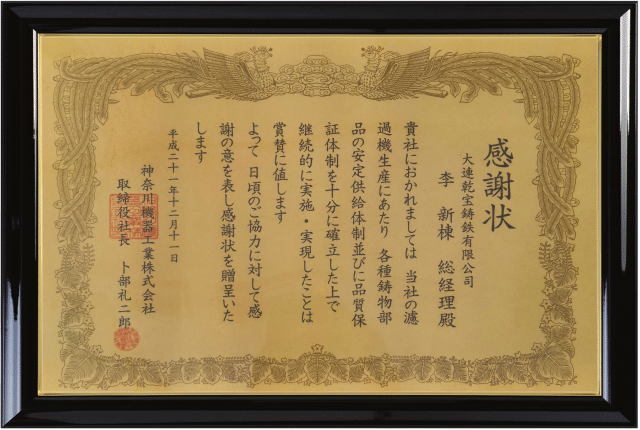 感謝状
大連乾宝鋳鉄有限公司
李 新棟 総経理殿
貴社におかれましては 当社の濾
過機生産にあたり 各種鋳物部
品の安定供給体制並びに品質保
証体制を十分に確立した上で
継続的に実施・実現したことは
賞賛に値します
よって 日頃のご協力に対して感
謝の意を表し感謝状を贈呈いた
します
平成二十一年十二月十一日
神奈川機器工業株式会社
取締役社長 卜部礼二郎